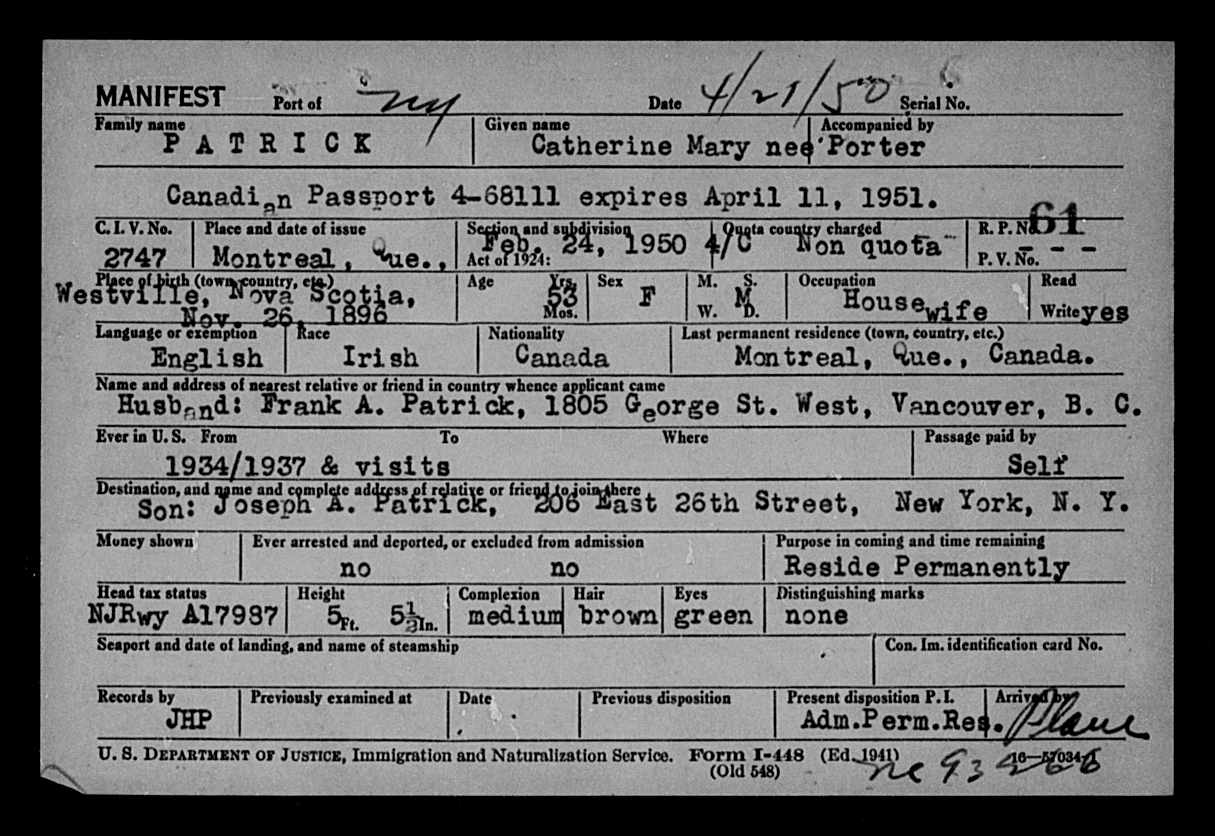 MANIFEST Port of NY Date 4/21/50 Serial No.
Family name Given name Accompanied by
PATRICK Catherine Mary nee Porter
Canadian Passport 4-68111 expires April 11, 1951.
C. I. V. No. Place and date of issue Section and subdivision Quota country charged R. P. No. 61
2747 Montreal, Que., Feb. 24, 1950 4/C Non quota - - -
Act of 1924: P. V. No.
Place of birth (town, country, etc.) Age Yrs. Sex M. S. Occupation Read
Westville, Nova Scotia, 53 F M Housewife
Nov. 26, 1896 Mos. W. D. Write yes
Language or exemption Race Nationality Last permanent residence (town, country, etc.)
English Irish Canada Montreal, Que., Canada.
Name and address of nearest relative or friend in country whence applicant came
Husband: Frank A. Patrick, 1805 George St. West, Vancouver, B. C.
Ever in U. S. From To Where Passage paid by
1934/1937 & visits Self
Destination, and name and complete address of relative or friend to join there
Son: Joseph A. Patrick, 206 East 26th Street, New York, N. Y.
Money shown Ever arrested and deported, or excluded from admission Purpose in coming and time remaining
no no Reside Permanently
Head tax status Height Complexion Hair Eyes Distinguishing marks
NJRwy A17987 5Ft. 5½In. medium brown green none
Seaport and date of landing, and name of steamship Con. Im. identification card No.
Records by Previously examined at Date Previous disposition Present disposition P. I. Arrived by
JHP Adm.Perm.Res.
U. S. DEPARTMENT OF JUSTICE, Immigration and Naturalization Service. Form I-448 (Ed. 1941)
(Old 548)